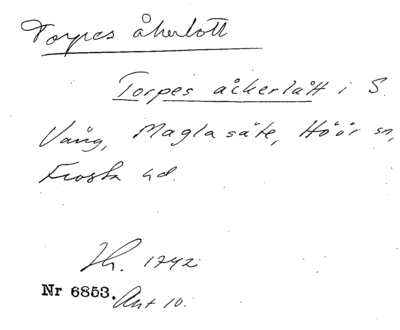 Torpes åkerlott
Torpes åckerlått i S.
Vång, Maglasäte, Höör sn,
Frosta hd.
Lh. 1742
Nr 6853. Akt 10.